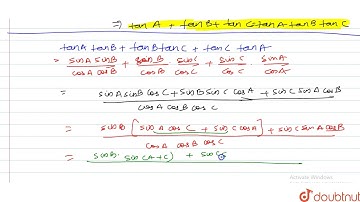 ⇒ tanA + tanB + tanC = tanA tanB tanC
tanA tanB + tanB tanC + tanC tanA
= sinA sinB / cosA cosB + sinB / cosB sinC / cosC + sinC / cosC sinA / cosA
= sinA sinB cosC + sinB sinC cosA + sinC sinA cosB / cosA cosB cosC
= sinB [sinA cosC + sinC cosA] + sinC sinA cosB / cosA cosB cosC
= sinB sin(A+C) + sinC
Activate Windows
doubtnut